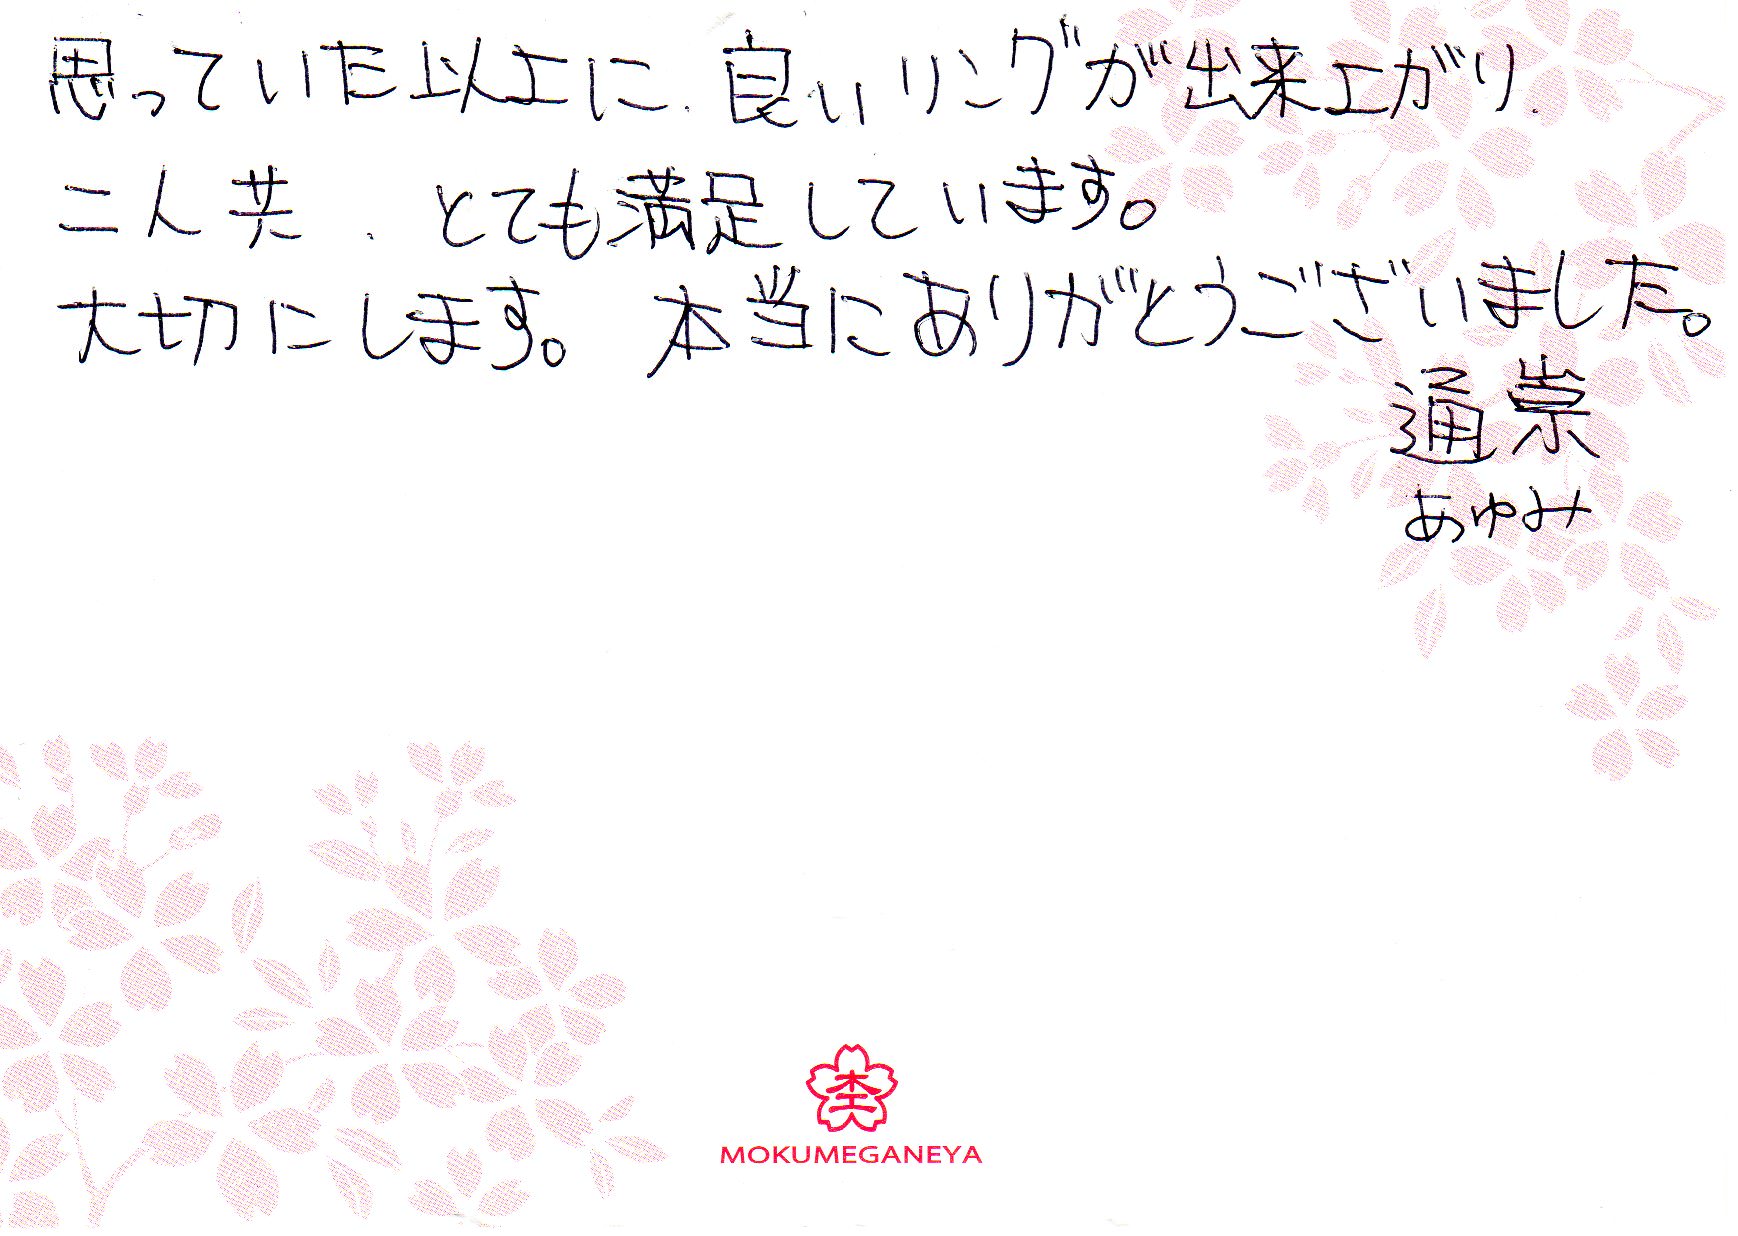 思っていた以上に、良いリングが出来上がり、
二人共、とても満足しています。
大切にします。本当にありがとうございました。
通崇
あゆみ
杢
MOKUMEGANEYA